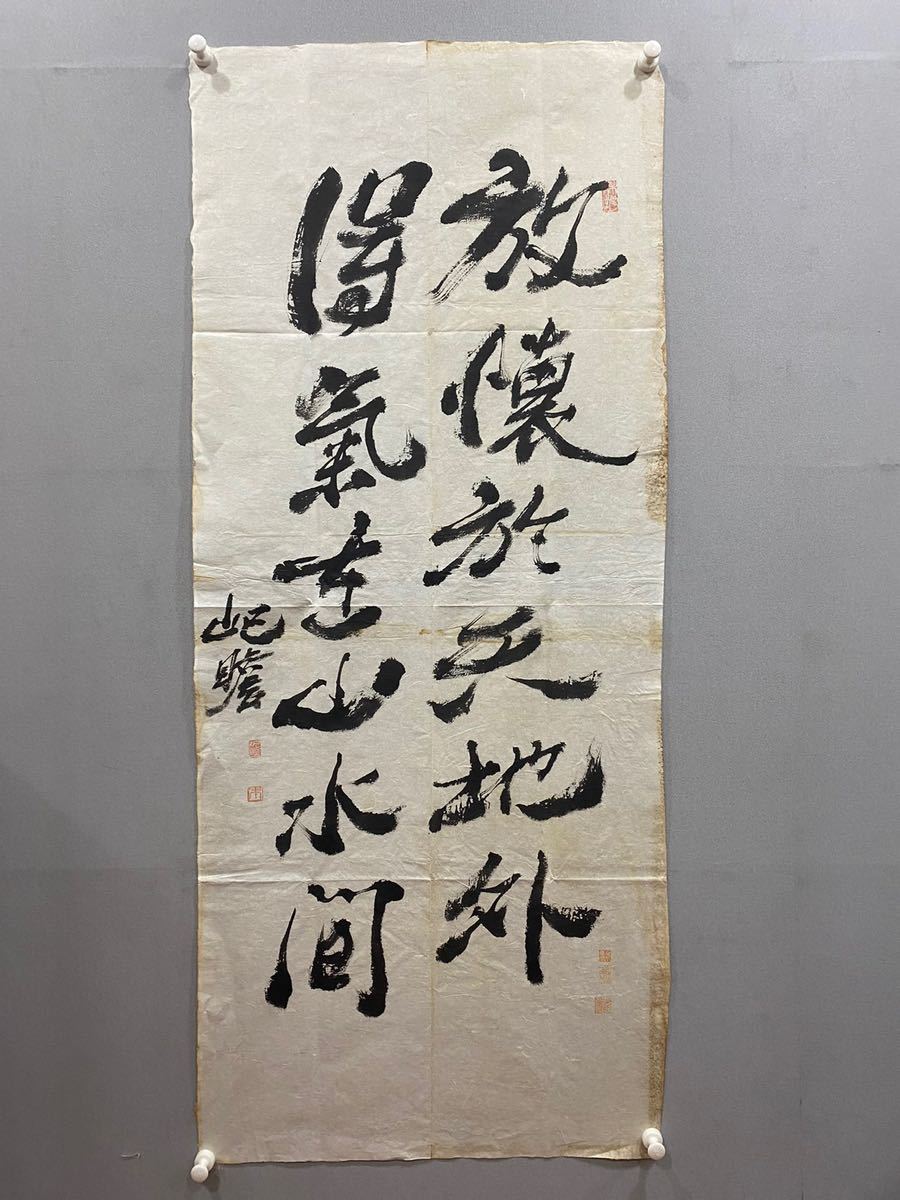 放懷於天地外
得氣在山水間
屺瞻